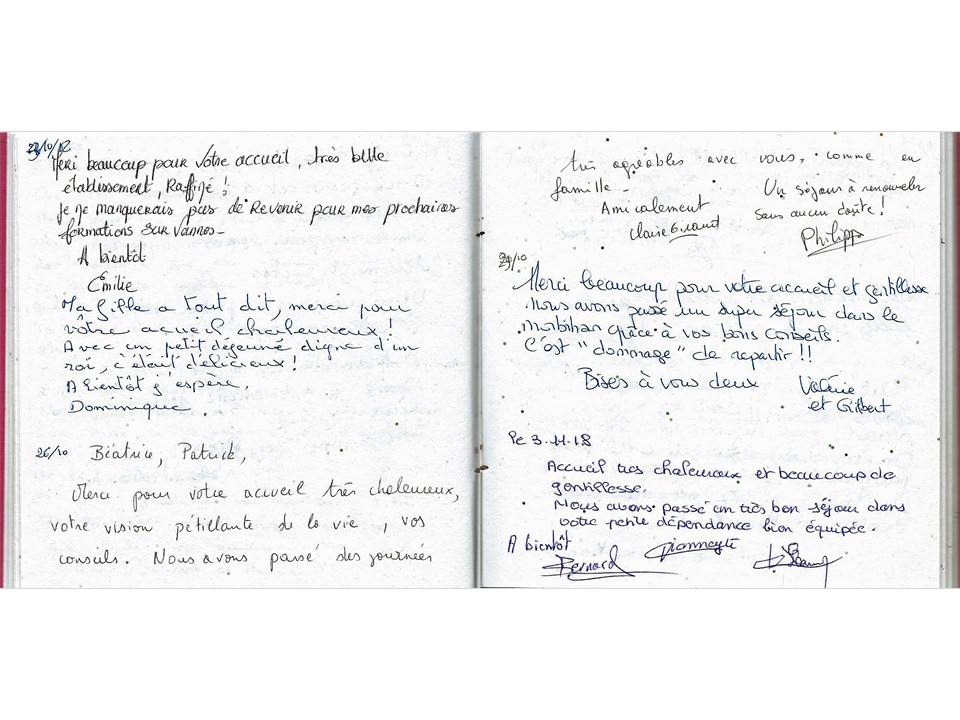 Merci beaucoup pour votre accueil, très belle
établissement, Raffiné!
Je ne manquerais pas de Revenir pour mes prochaires
formations sur Vannes_
A bientôt
Emilie
Ma fille a tout dit, merci pour
vôtre acueil chaleureux!
Avec un petit déjeuné digne d'un
roi, c'était délicieux!
A Bientôt j'espère,
Dominique.
26/10 Béatrice, Patrick,
Merci pour votre accueil très chaleureux,
votre vision pétillante de la vie, vos
conseils. Nous avons passé des journées
très agréables avec vous, comme en
famille_
Amicalement
Claire
Un séjour à renouveler
sans aucun doute!
Philippe
29/10
Merci beaucoup pour votre accueil et gentillesse
Nous avons passé un super séjour dans le
morbihan grâce à vos bons conseils.
C'est "dommage" de repartir!!
Bises à vous deux
Valérie
et Gilbert
Le 3.11.18
Accueil très chaleureux et beaucoup de
gentillesse.
Nous avons passé un très bon séjour dans
votre petite dépendance bien équipée.
A bientôt
Bernard